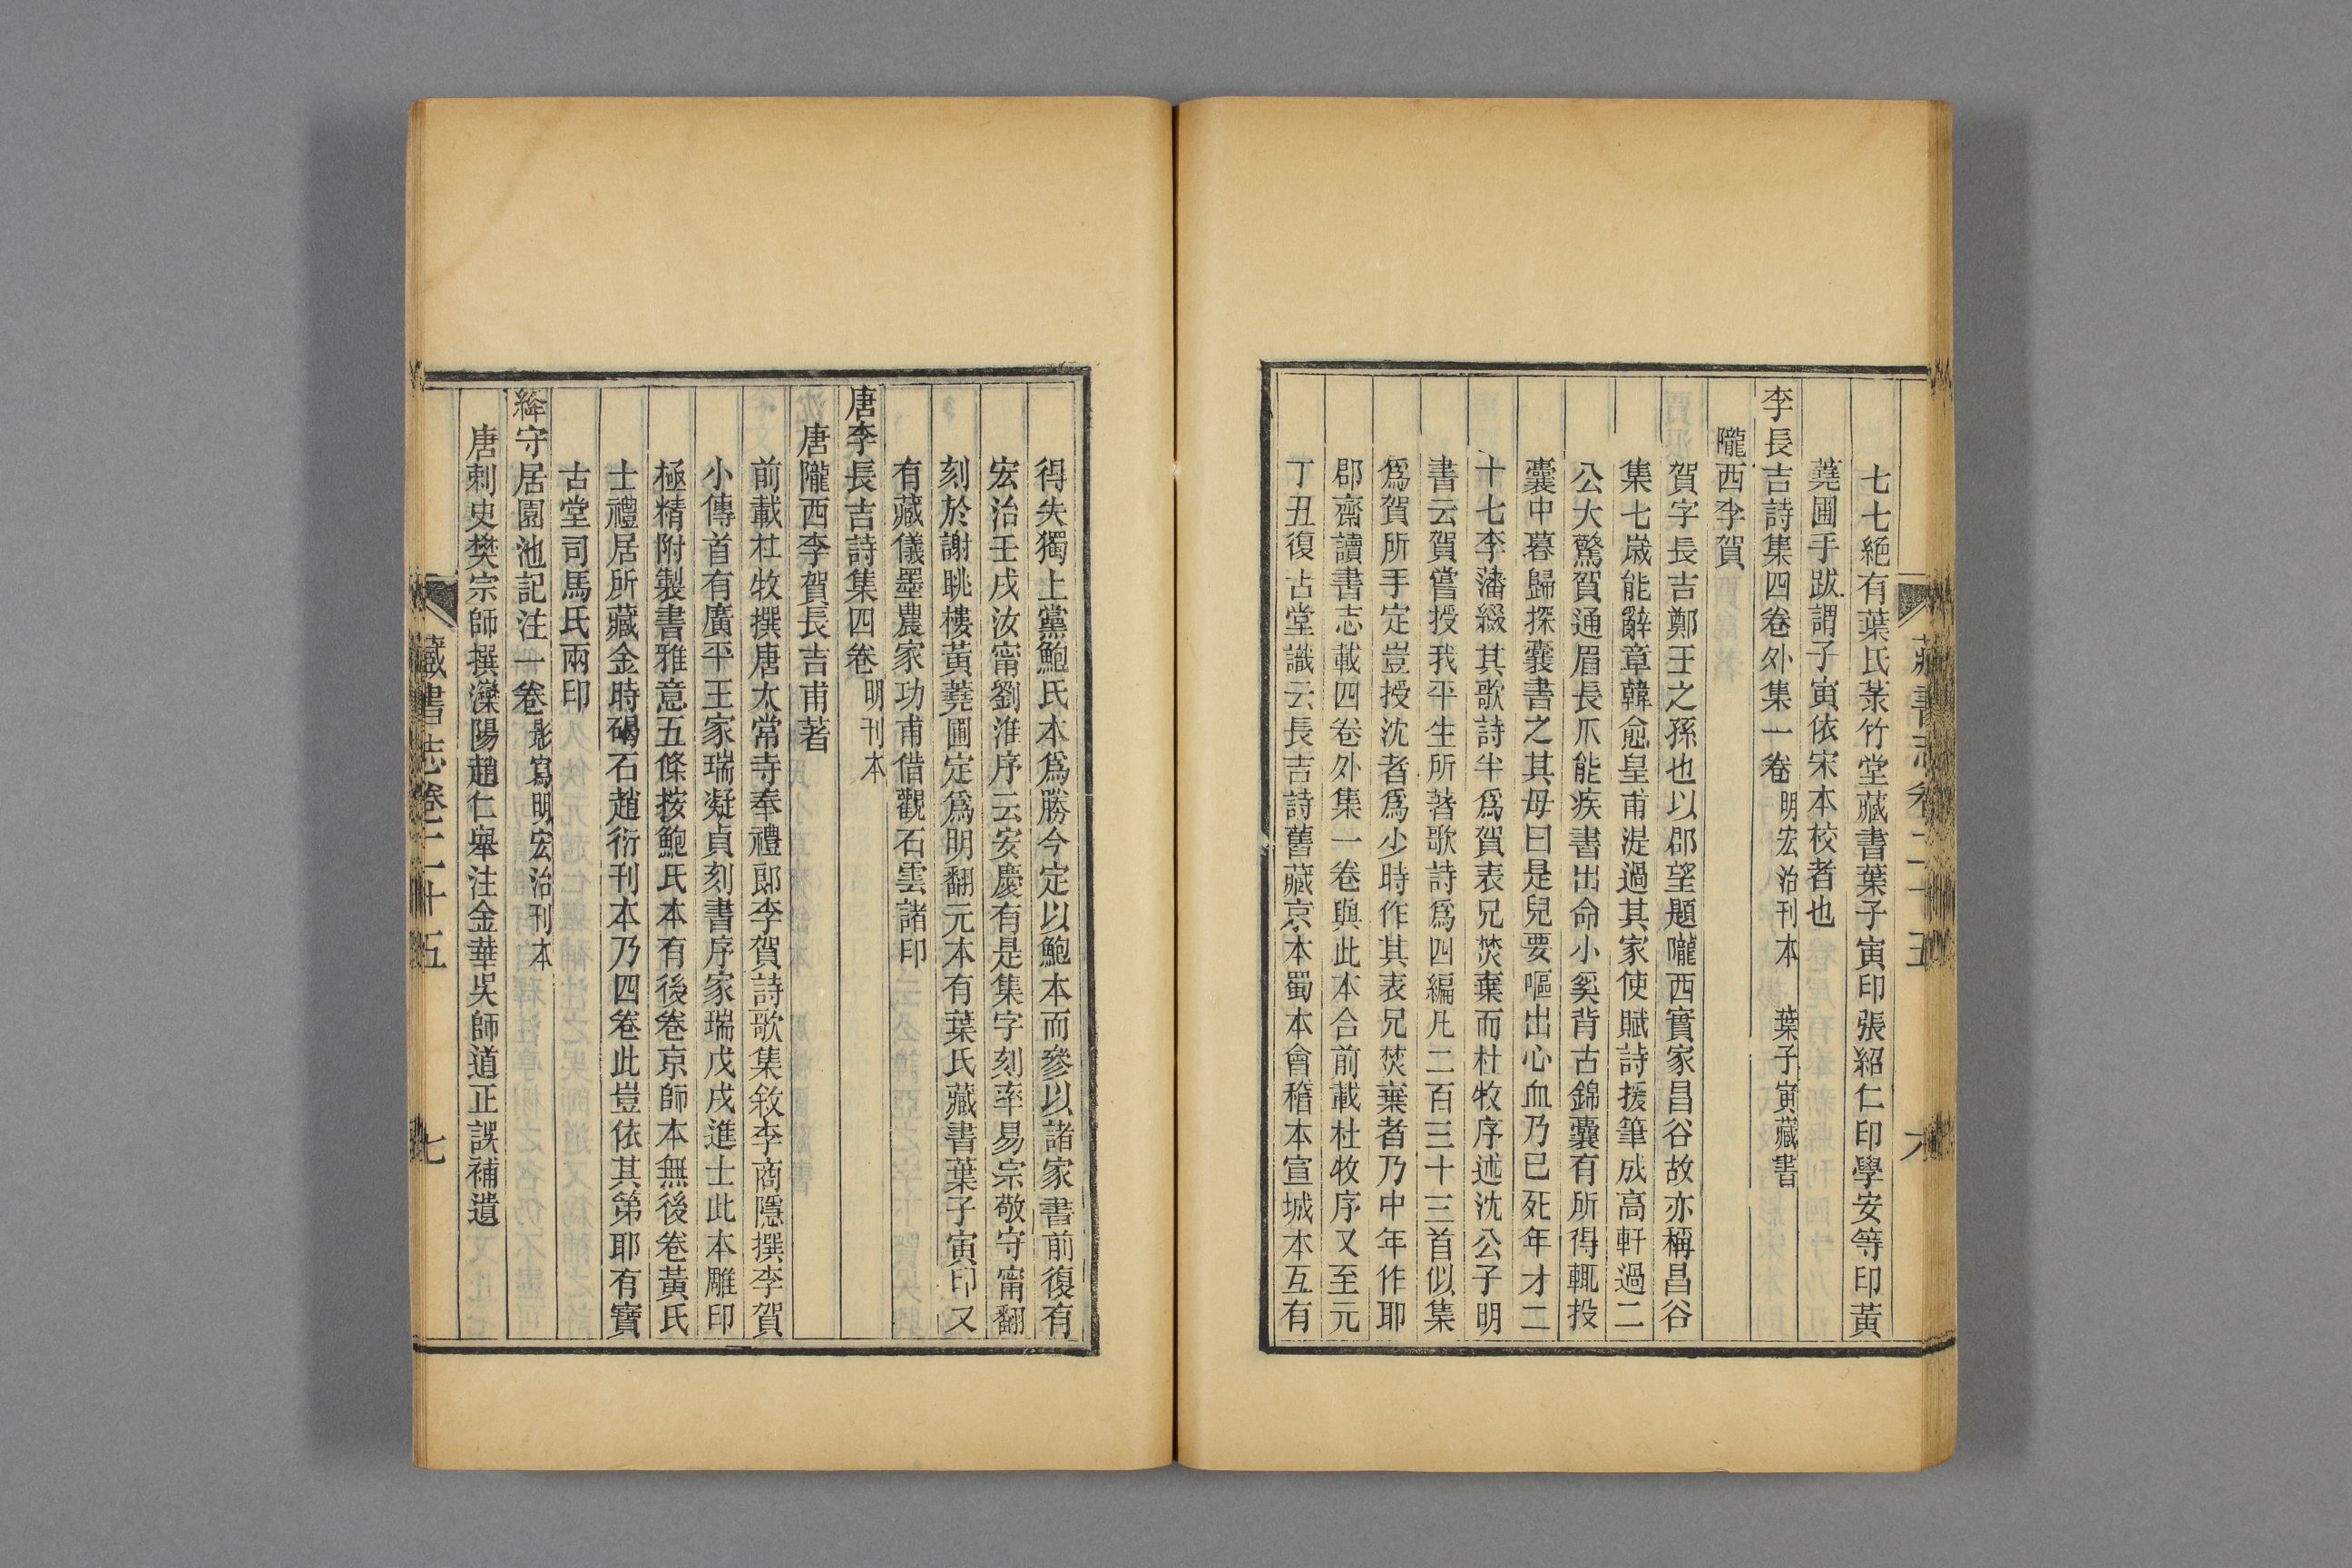 藏書志卷二十五
六
七七絕有葉氏菉竹堂藏書葉子寅印張紹仁印學安等印黃
蕘圃手跋謂子寅依宋本校者也
李長吉詩集四卷外集一卷明宏治刊本 葉子寅藏書
隴西李賀
賀字長吉鄭王之孫也以郡望題隴西實家昌谷故亦稱昌谷
集七歲能辭章韓愈皇甫湜過其家使賦詩援筆成高軒過二
公大驚賀通眉長爪能疾書出命小奚背古錦囊有所得輒投
囊中暮歸探囊書之其母曰是兒要嘔出心血乃已死年才二
十七李藩綴其歌詩半爲賀表兄焚棄而杜牧序述沈公子明
書云賀嘗授我平生所著歌詩爲四編凡二百三十三首似集
爲賀所手定豈授沈者爲少時作其表兄焚棄者乃中年作耶
郡齋讀書志載四卷外集一卷與此本合前載杜牧序又至元
丁丑復古堂識云長吉詩舊藏京本蜀本會稽本宣城本互有
得失獨上黨鮑氏本爲勝今定以鮑本而參以諸家書前復有
宏治壬戌汝甯劉淮序云安慶有是集字刻率易宗敬守甯翻
刻於謝眺樓黃蕘圃定爲明翻元本有葉氏藏書葉子寅印又
有藏儀墨農家功甫借觀石雲諸印
唐李長吉詩集四卷明刊本
唐隴西李賀長吉甫著
前載杜牧撰唐太常寺奉禮郎李賀詩歌集敘李商隱撰李賀
小傳首有廣平王家瑞凝貞刻書序家瑞戊戌進士此本雕印
極精附製書雅意五條按鮑氏本有後卷京師本無後卷黃氏
士禮居所藏金時碣石趙衍刊本乃四卷此豈依其第耶有寶
古堂司馬氏兩印
絳守居園池記注一卷影寫明宏治刊本
唐刺史樊宗師撰灤陽趙仁舉注金華吳師道正誤補遺
藏書志卷二十五
七